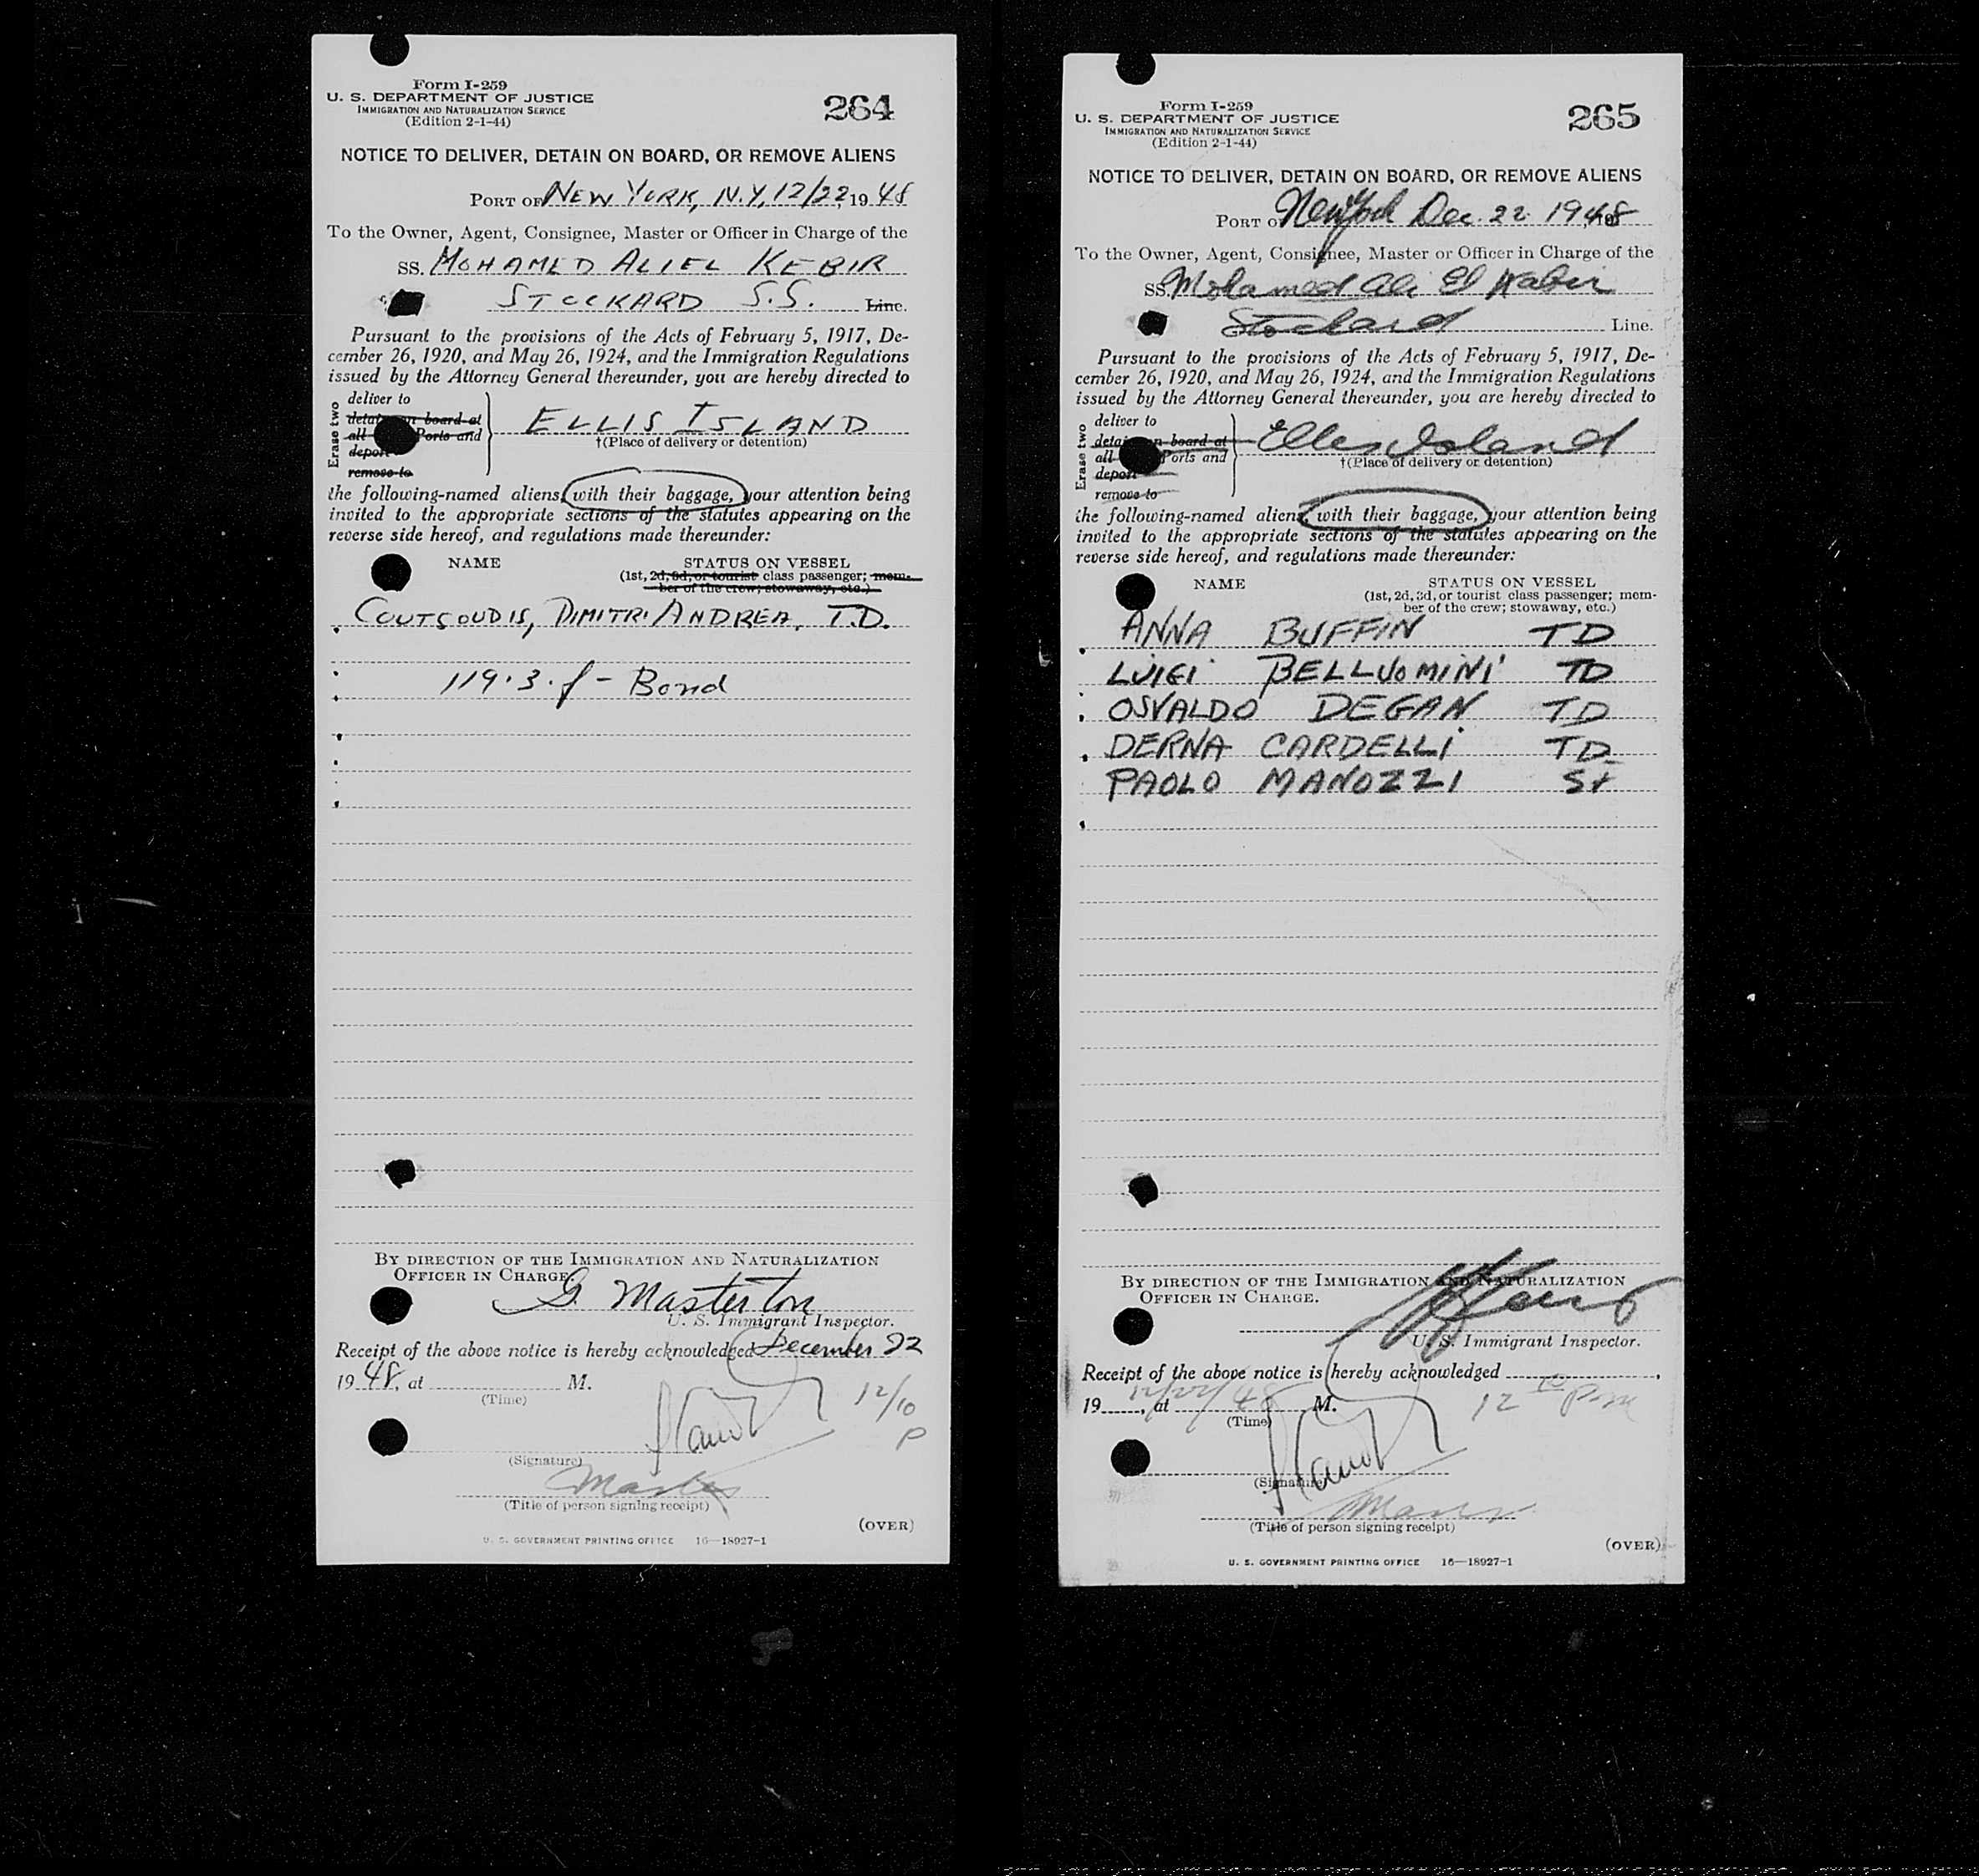 Form I-259
U. S. DEPARTMENT OF JUSTICE
IMMIGRATION AND NATURALIZATION SERVICE
(Edition 2-1-44)
264
NOTICE TO DELIVER, DETAIN ON BOARD, OR REMOVE ALIENS
PORT OF NEW YORK, N.Y, 12/22, 1948
To the Owner, Agent, Consignee, Master or Officer in Charge of the
SS. MOHAMED ALIEL KEBIR
STOCKARD S.S. Line.
Pursuant to the provisions of the Acts of February 5, 1917, De-
cember 26, 1920, and May 26, 1924, and the Immigration Regulations
issued by the Attorney General thereunder, you are hereby directed to
Erase two
deliver to
detain on board at
all Ports and
deport
remove to
ELLIS ISLAND
†(Place of delivery or detention)
the following-named aliens, with their baggage, your attention being
invited to the appropriate sections of the statutes appearing on the
reverse side hereof, and regulations made thereunder:
NAME STATUS ON VESSEL
(1st, 2d, 3d, or tourist class passenger; mem-
ber of the crew; stowaway, etc.)
COUTSOUDIS, DIMITRI ANDREA, T.D.
119.3.f - Bond
BY DIRECTION OF THE IMMIGRATION AND NATURALIZATION
OFFICER IN CHARGE.
G. Masterton
U. S. Immigrant Inspector.
Receipt of the above notice is hereby acknowledged December 22
1948, at M.
(Time)
12/10
P
(Signature)
Master
(Title of person signing receipt)
(OVER)
U. S. GOVERNMENT PRINTING OFFICE 16—18927-1
Form I-259
U. S. DEPARTMENT OF JUSTICE
IMMIGRATION AND NATURALIZATION SERVICE
(Edition 2-1-44)
265
NOTICE TO DELIVER, DETAIN ON BOARD, OR REMOVE ALIENS
PORT OF New York Dec. 22 1948
To the Owner, Agent, Consignee, Master or Officer in Charge of the
SS. Mohamed Ali El Kabir
Stockard Line.
Pursuant to the provisions of the Acts of February 5, 1917, De-
cember 26, 1920, and May 26, 1924, and the Immigration Regulations
issued by the Attorney General thereunder, you are hereby directed to
Erase two
deliver to
detain on board at
all Ports and
deport
remove to
Ellis Island
†(Place of delivery or detention)
the following-named aliens, with their baggage, your attention being
invited to the appropriate sections of the statutes appearing on the
reverse side hereof, and regulations made thereunder:
NAME STATUS ON VESSEL
(1st, 2d, 3d, or tourist class passenger; mem-
ber of the crew; stowaway, etc.)
ANNA BUFFIN TD
LUIGI BELLUOMINI TD
OSVALDO DEGAN TD
DERNA CARDELLI TD
PAOLO MANOZZI St
BY DIRECTION OF THE IMMIGRATION AND NATURALIZATION
OFFICER IN CHARGE.
U. S. Immigrant Inspector.
Receipt of the above notice is hereby acknowledged ,
19 , at 12/22/48 M. 12 10 pm
(Time)
(Signature)
Master
(Title of person signing receipt)
(OVER)
U. S. GOVERNMENT PRINTING OFFICE 16—18927-1